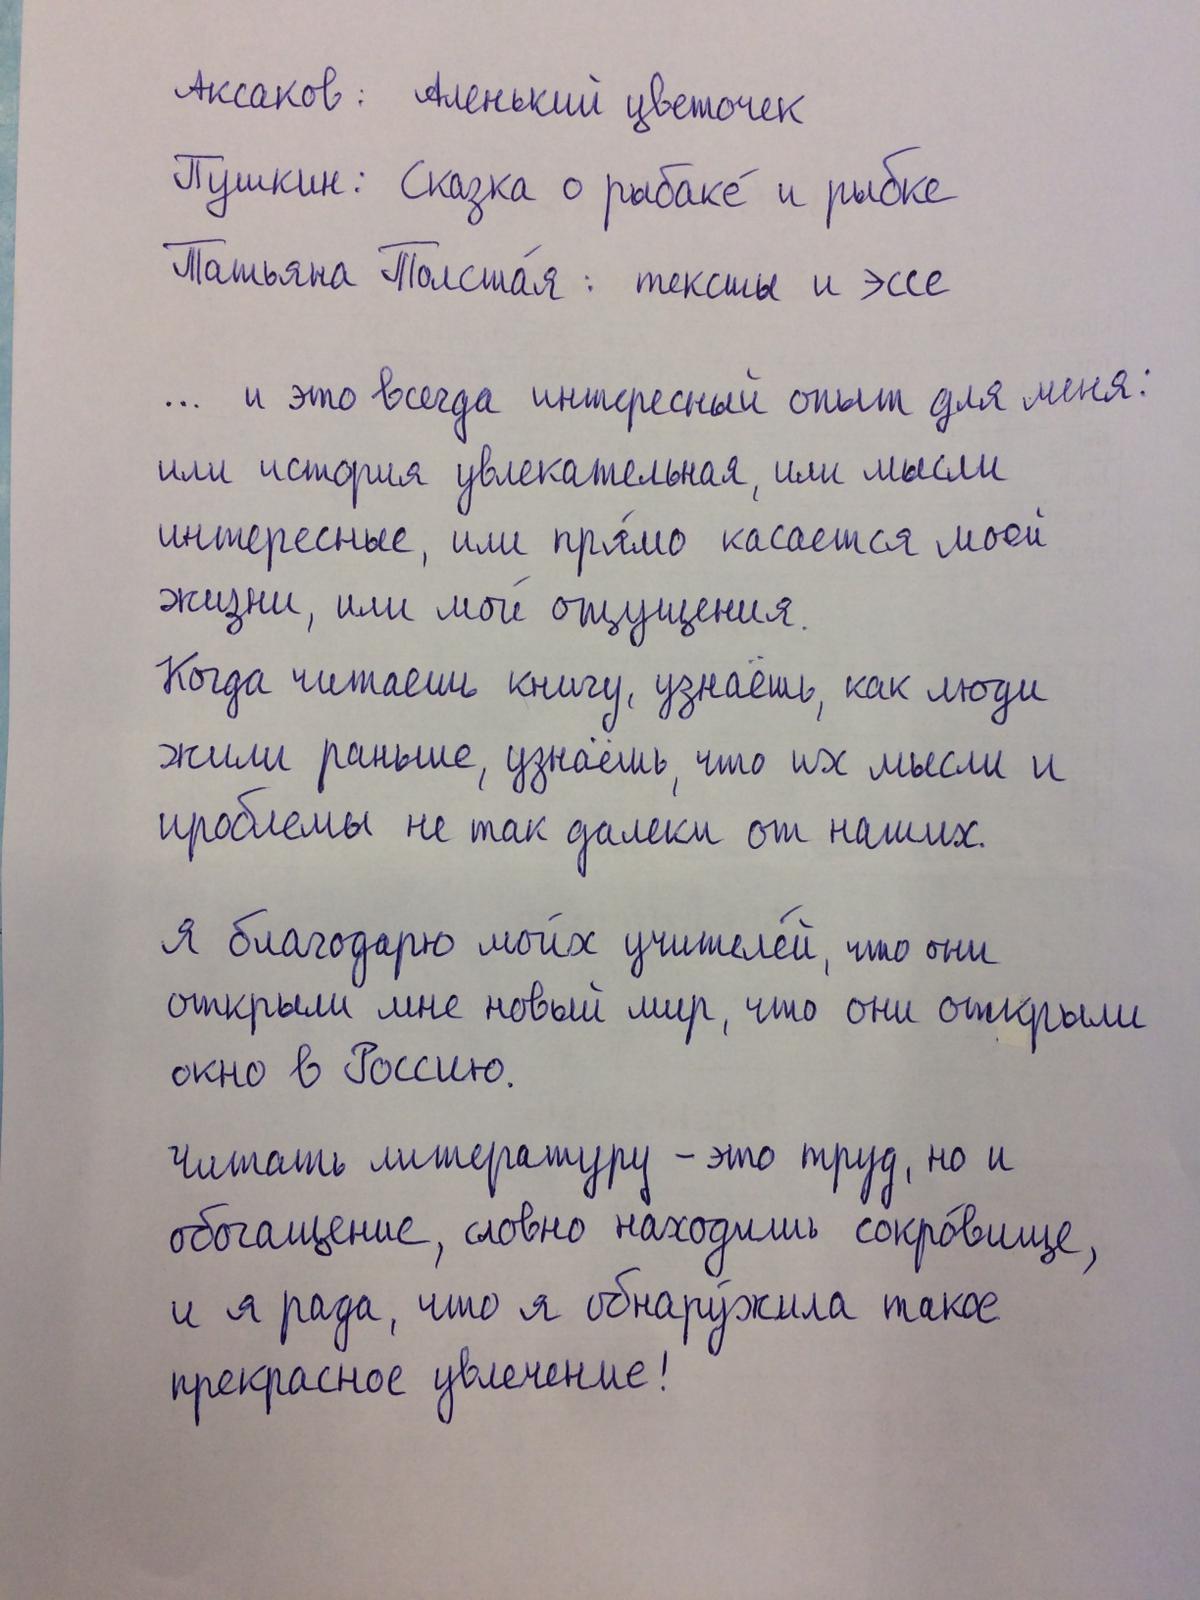 Аксаков: Аленький цветочек
Пушкин: Сказка о рыбаке́ и рыбке
Татьяна Толста́я: тексты и эссе
... и это всегда интересный опыт для меня:
или история увлекательная, или мысли
интересные, или пря́мо касается моей
жизни, или мои́ отщущения.
Когда читаешь книгу, узнаёшь, как люди
жили раньше, узнаёшь, что их мысли и
проблемы не так далеки от наших.
Я благодарю мои́х учителе́й, что они
открыли мне новый мир, что они открыли
окно в Россию.
Читать литературу – это труд, но и
обогащение, словно находишь сокро́вище,
и я рада, что я обнару́жила такое
прекрасное увлечение!